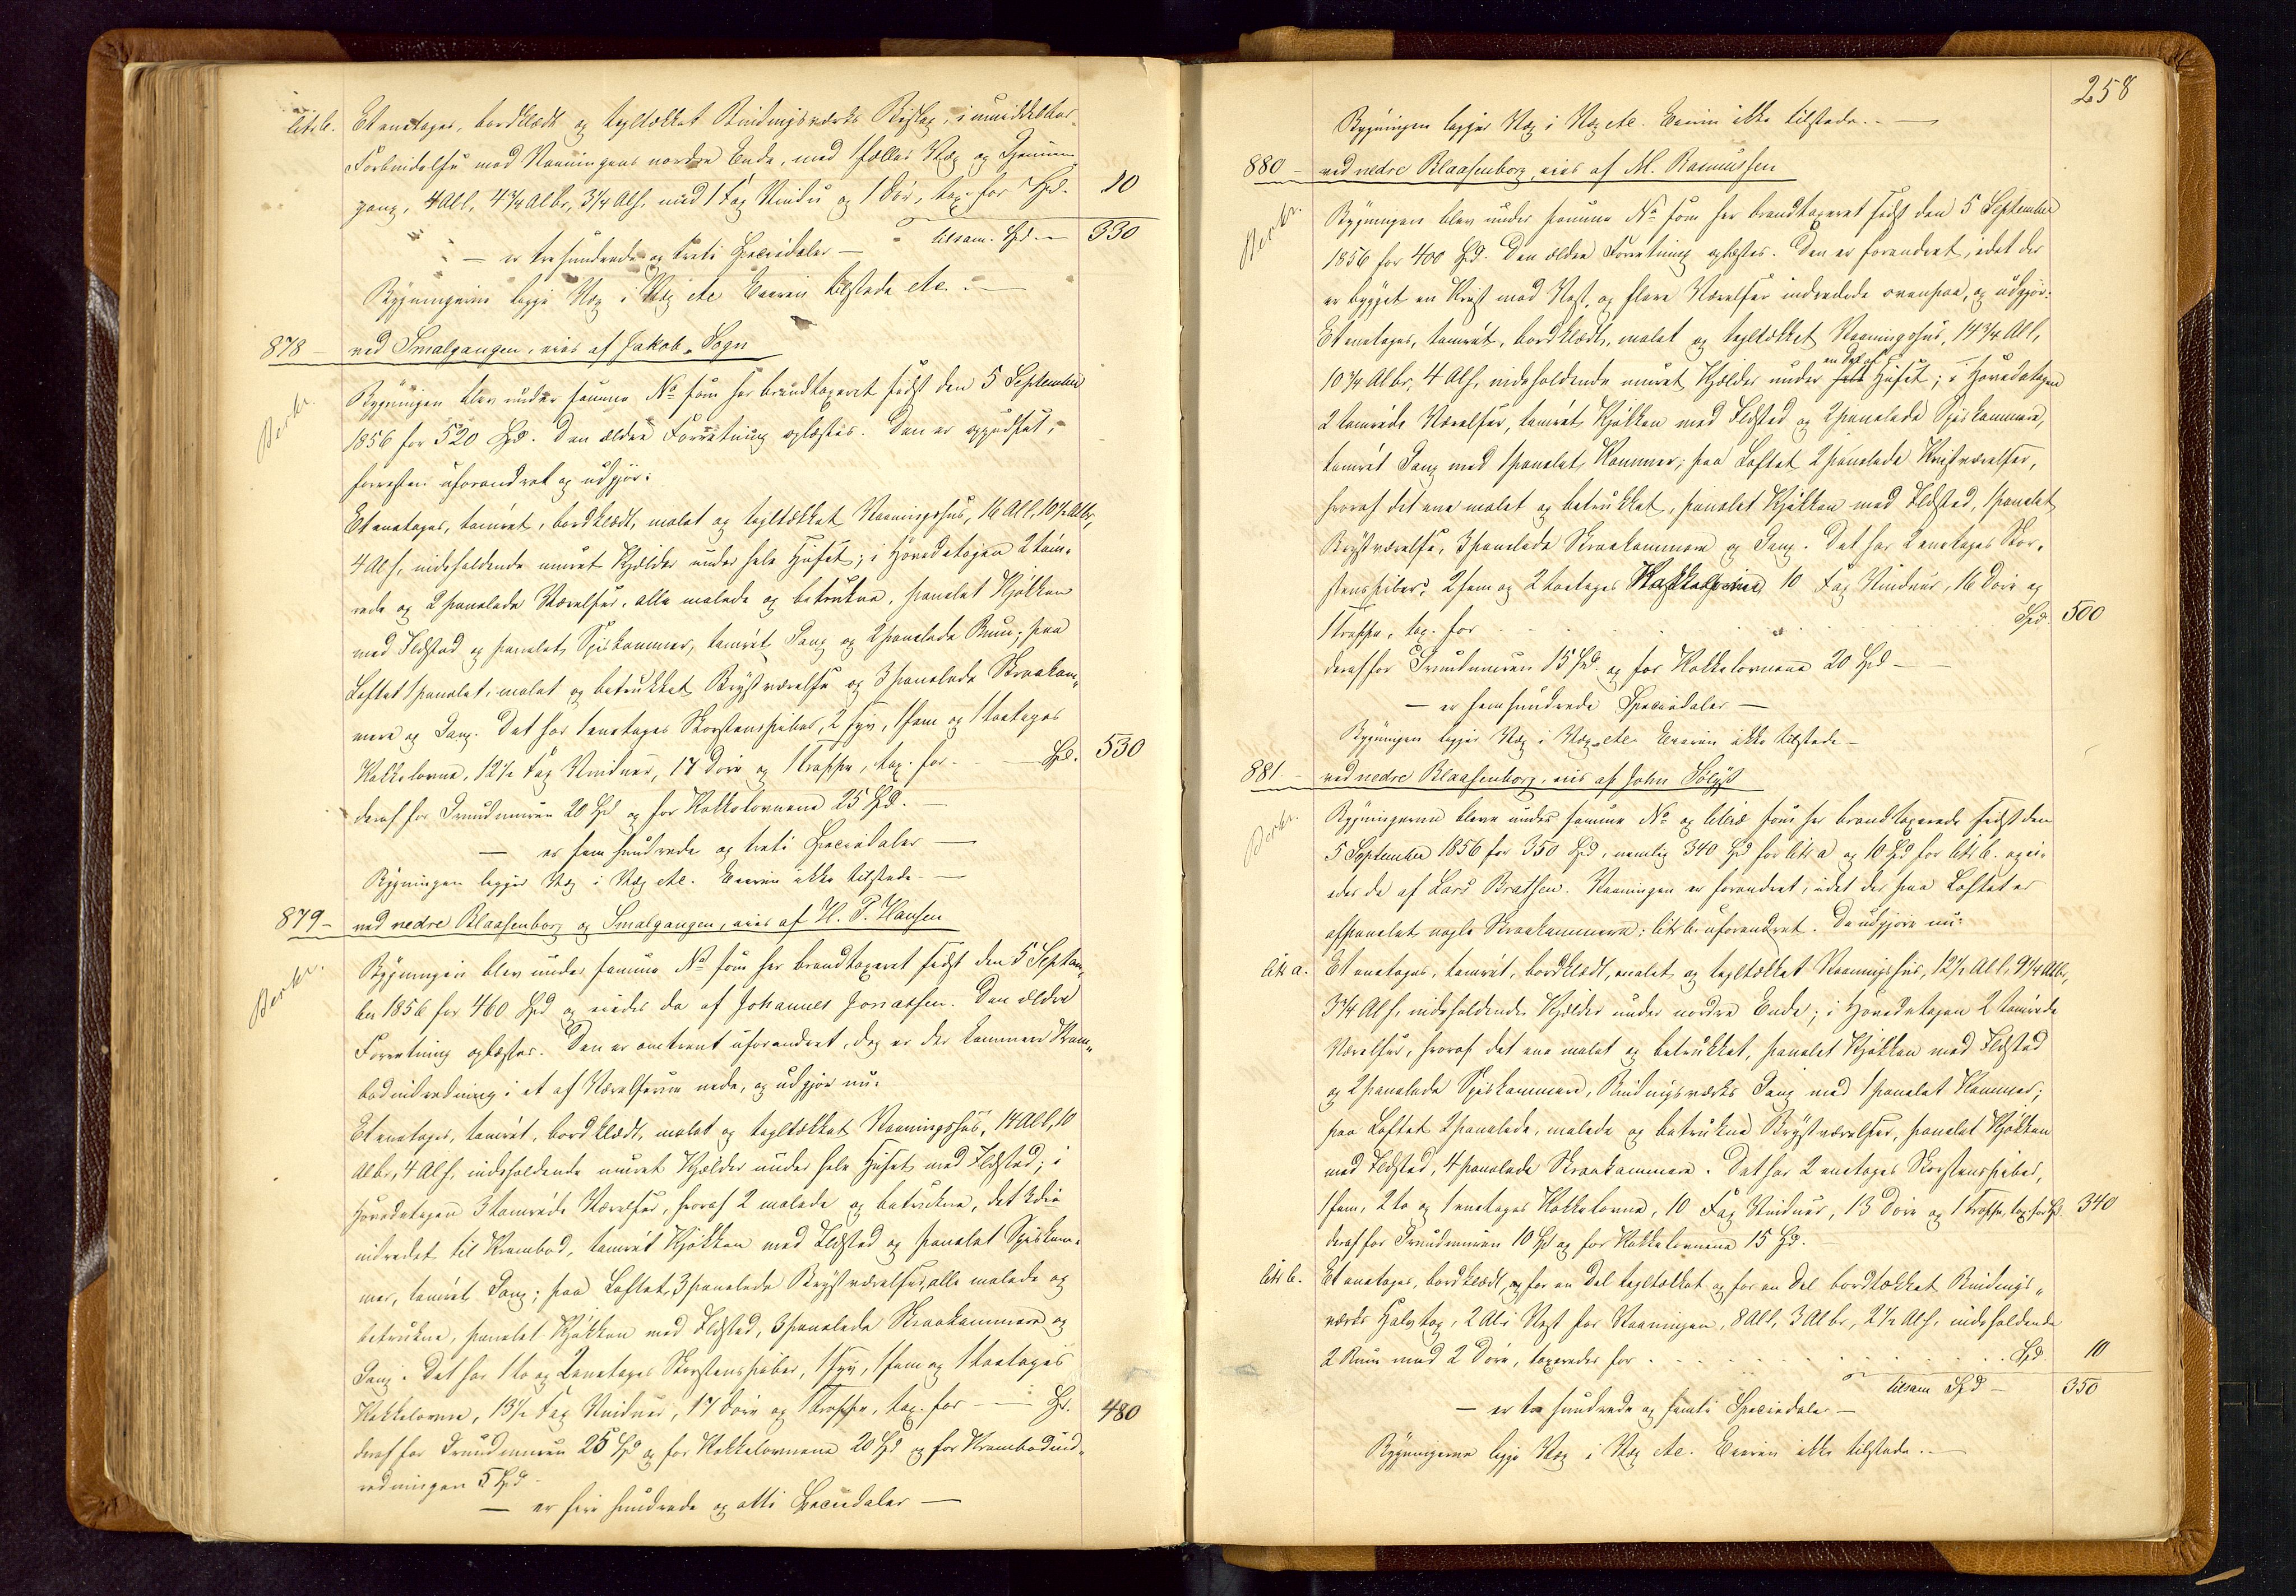 litr b. Et enetages, bordklædt og tegltækket Bindingsværks Bislag, i umiddelbar
Forbindelse med Vaaningens nordre Ende, med 1 fælles Væg og Gjennem-
gang, 4 Al l, 4 3/4 Al br, 3 1/4 Al h, med 1 Fag Vindu og 1 Dør, tax. for Spd. 10
tilsam. Spd. — 330
— er trehundrede og treti Speciedaler —
Bygningerne ligge Væg i Væg etc. Eieren tilstede etc. —
878 — ved Smalgangen, eies af Jakob Sogn
Berkr.
Bygningen blev under samme No som her brandtaxeret sidst den 5 September
1856 for 520 Spd. Den ældre Forretning oplæstes. Den er oppudset,
forresten uforandret og udgjør:
Et enetages, tømret, bordklædt, malet og tegltækket Vaaningshus, 16 Al l, 10 1/2 Al br,
4 Al h, indeholdende muret Kjælder under hele Huset; i Hovedetagen 2 tøm-
rede og 2 panelede Værelser, alle malede og betrukne, panelet Kjøkken
med Ildsted og panelet Spiskammer, tømret Gang og 2 panelede Rum; paa
Loftet 1 panelet, malet og betrukket Brystværelse og 3 panelede Skraakam-
mere og Gang. Det har 1 enetages Skorstenspiber, 2 fyr, 1 fem og 1 toetages
Kakkelovne, 12 1/2 Fag Vinduer, 17 Døre og 1 Trappe, tax. for — Spd. 530
deraf for Grundmuren 20 Spd og for Kakkelovnene 25 Spd. —
— er fem hundrede og treti Speciedaler —
Bygningen ligger Væg i Væg etc. Eieren ikke tilstede. —
879 — ved nedre Blaasenborg og Smalgangen, eies af H. P. Hansen
Berkr.
Bygningen blev under samme No som her brandtaxeret sidst den 5 Septem-
ber 1856 for 460 Spd og eiedes da af Johannes Jonassen. Den ældre
Forretning oplæstes. Den er omtrent uforandret, dog er der kommen Kram-
bodindredning i et af Værelserne nede, og udgjør nu:
Et enetages, tømret, bordklædt, malet og tegltækket Vaaningshus, 14 Al l, 10
Al br, 4 Al h, indeholdende muret Kjælder under hele Huset med Ildsted; i
Hovedetagen 3 tømrede Værelser, hvoraf 2 malede og betrukne, det 3die
indredet til Krambod, tømret Kjøkken med Ildsted og panelet Spiskam-
mer, tømret Gang; paa Loftet 3 panelede Brystværelser, alle malede og
betrukne, panelet Kjøkken med Ildsted, 3 panelede Skraakammere og
Gang. Det har 1 to og 2 enetages Skorstenspiber, 1 fyr, 1 fem og 1 toetages
Kakkelovne, 13 1/2 Fag Vinduer, 17 Døre og 1 Trappe, tax. for — Spd. 480
deraf for Grundmuren 25 Spd og for Kakkelovnene 20 Spd og for Krambodind-
redningen 5 Spd —
— er fire hundrede og otti Speciedaler —
258
Bygningen ligger Væg i Væg etc. Eieren ikke tilstede. —
880 — ved nedre Blaasenborg, eies af M. Rasmussen
Berkr.
Bygningen blev under samme No som her brandtaxeret sidst den 5 September
1856 for 400 Spd. Den ældre Forretning oplæstes. Den er forandret, idet der
er bygget en Kvist mod Vest, og flere Værelser indredede ovenpaa, og udgjør:
Et enetages, tømret, bordklædt, malet og tegltækket Vaaningshus, 14 3/4 Al l,
10 3/4 Al br, 4 Al h, indeholdende muret Kjælder under en Del af Huset; i Hovedetagen
2 tømrede Værelser, tømret Kjøkken med Ildsted og 2 panelede Spiskammere,
tømret Gang med 1 panelet Kammer; paa Loftet 2 panelede Kvistværelser,
hvoraf det ene malet og betrukket, panelet Kjøkken med Ildsted, 1 panelet
Brystværelse, 3 panelede Skraakammere og Gang. Det har 2 enetages Skor-
stenspiber, 2 fem og 2 toetages Kakkelovne, 10 Fag Vinduer, 16 Døre og
1 Trappe, tax. for . . . Spd. 500
deraf for Grundmuren 15 Spd og for Kakkelovnene 20 Spd —
— er femhundrede Speciedaler —
Bygningen ligger Væg i Væg etc. Eieren ikke tilstede —
881 — ved nedre Blaasenborg, eies af John Sølyst
Berkr.
Bygningerne bleve under samme No og litræ som her brandtaxerede sidst den
5 September 1856 for 350 Spd, nemlig 340 Spd for litr a og 10 Spd for litr b. og ei-
edes da af Lars Brathen. Vaaningen er forandret, idet der paa Loftet er
afpanelet nogle Skraakammere; litr b. uforandret. De udgjøre nu:
litr a. Et enetages, tømret, bordklædt, malet og tegltækket Vaaningshus, 12 1/2 Al l, 9 1/4 Al br,
3 3/4 Al h, indeholdende Kjælder under nordre Ende; i Hovedetagen 2 tømrede
Værelser, hvoraf det ene malet og betrukket, panelet Kjøkken med Ildsted
og 2 panelede Spiskammere, Bindingsværks Gang med 1 panelet Kammer;
paa Loftet 2 panelede, malede og betrukne Brystværelser, panelet Kjøkken
med Ildsted, 4 panelede Skraakammere. Det har 2 enetages Skorstenspiber,
1 fem, 2 to og 1 enetages Kakkelovne, 10 Fag Vinduer, 13 Døre og 1 Trappe, tax. for Spd. 340
deraf for Grundmuren 10 Spd og for Kakkelovnene 15 Spd.
litr b. Et enetages, bordklædt, og for en Del tegltækket og for en Del bordtækket Bindings-
værks Halvtag, 2 Al i Vest for Vaaningen, 8 Al l, 3 Al br, 2 1/2 Al h, indeholdende
2 Rum med 2 Døre, taxeredes for . . . Spd. 10
tilsam Spd — 350
— er tre hundrede og femti Speciedaler —
Bygningerne ligge Væg i Væg etc. Eieren ikke tilstede. —